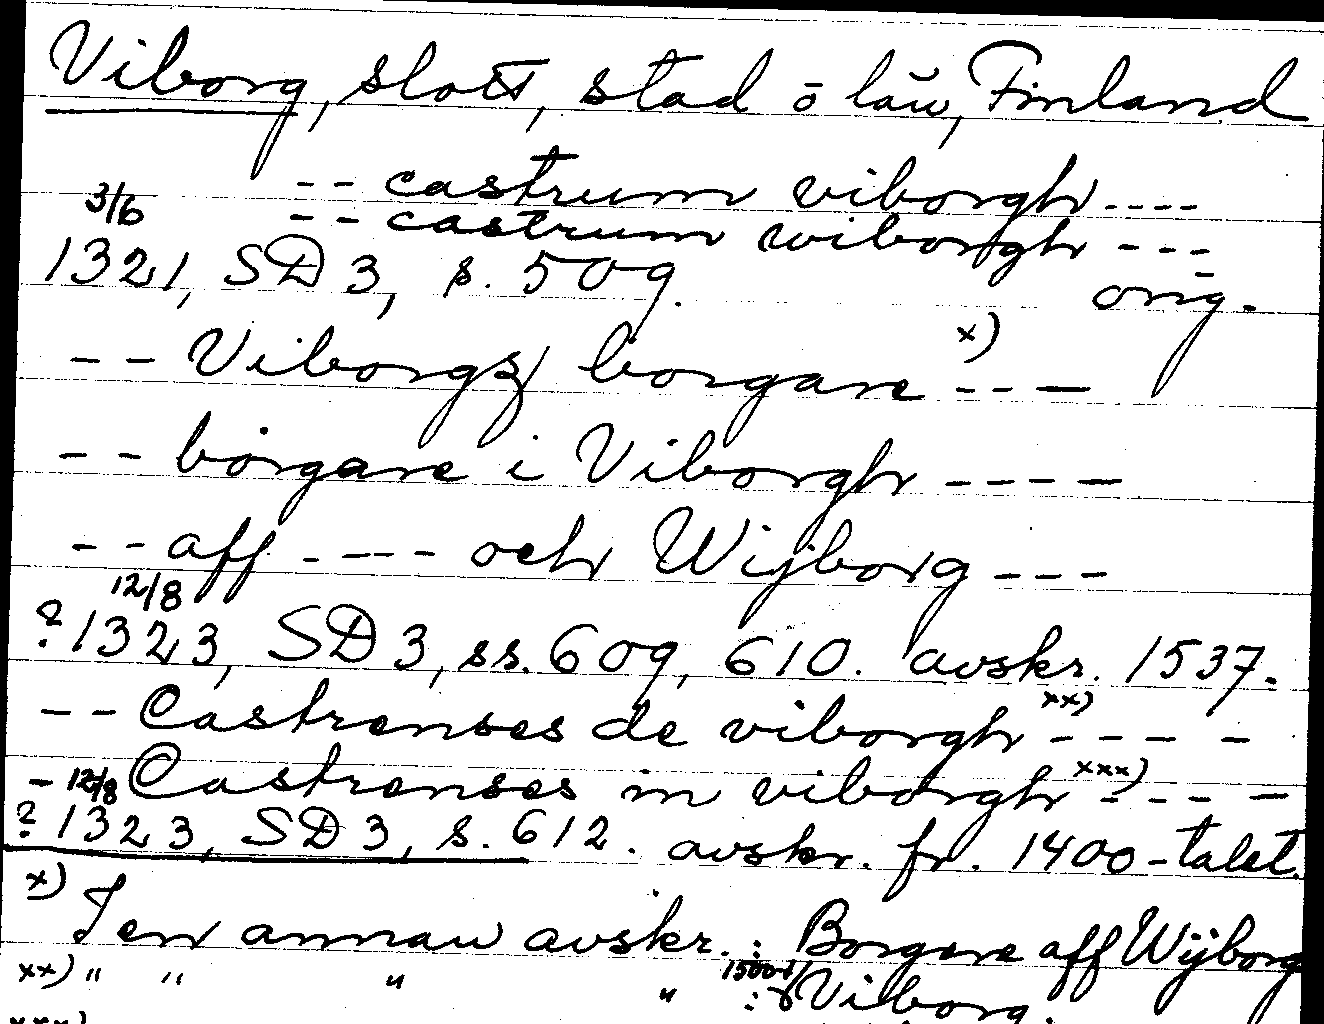 Viborg, slott, stad o län, Finland
-- castrum viborgh ----
3/6 -- castrum wiborgh ---
1321, SD 3, s. 509. orig.
-- Viborgz borgare x) ---
-- borgare i Viborgh ----
-- aff ---- och Wijborg ---
12/8
? 1323, SD 3, ss. 609, 610. avskr. 1537.
-- Castrenses de viborgh xx) ----
- Castrenses in viborgh xxx) ----
12/8
? 1323, SD 3, s. 612. avskr. fr. 1400-talet.
x) I en annan avskr.: Borgare aff Wijborg
xx) " " " " : Viborg.
xxx)